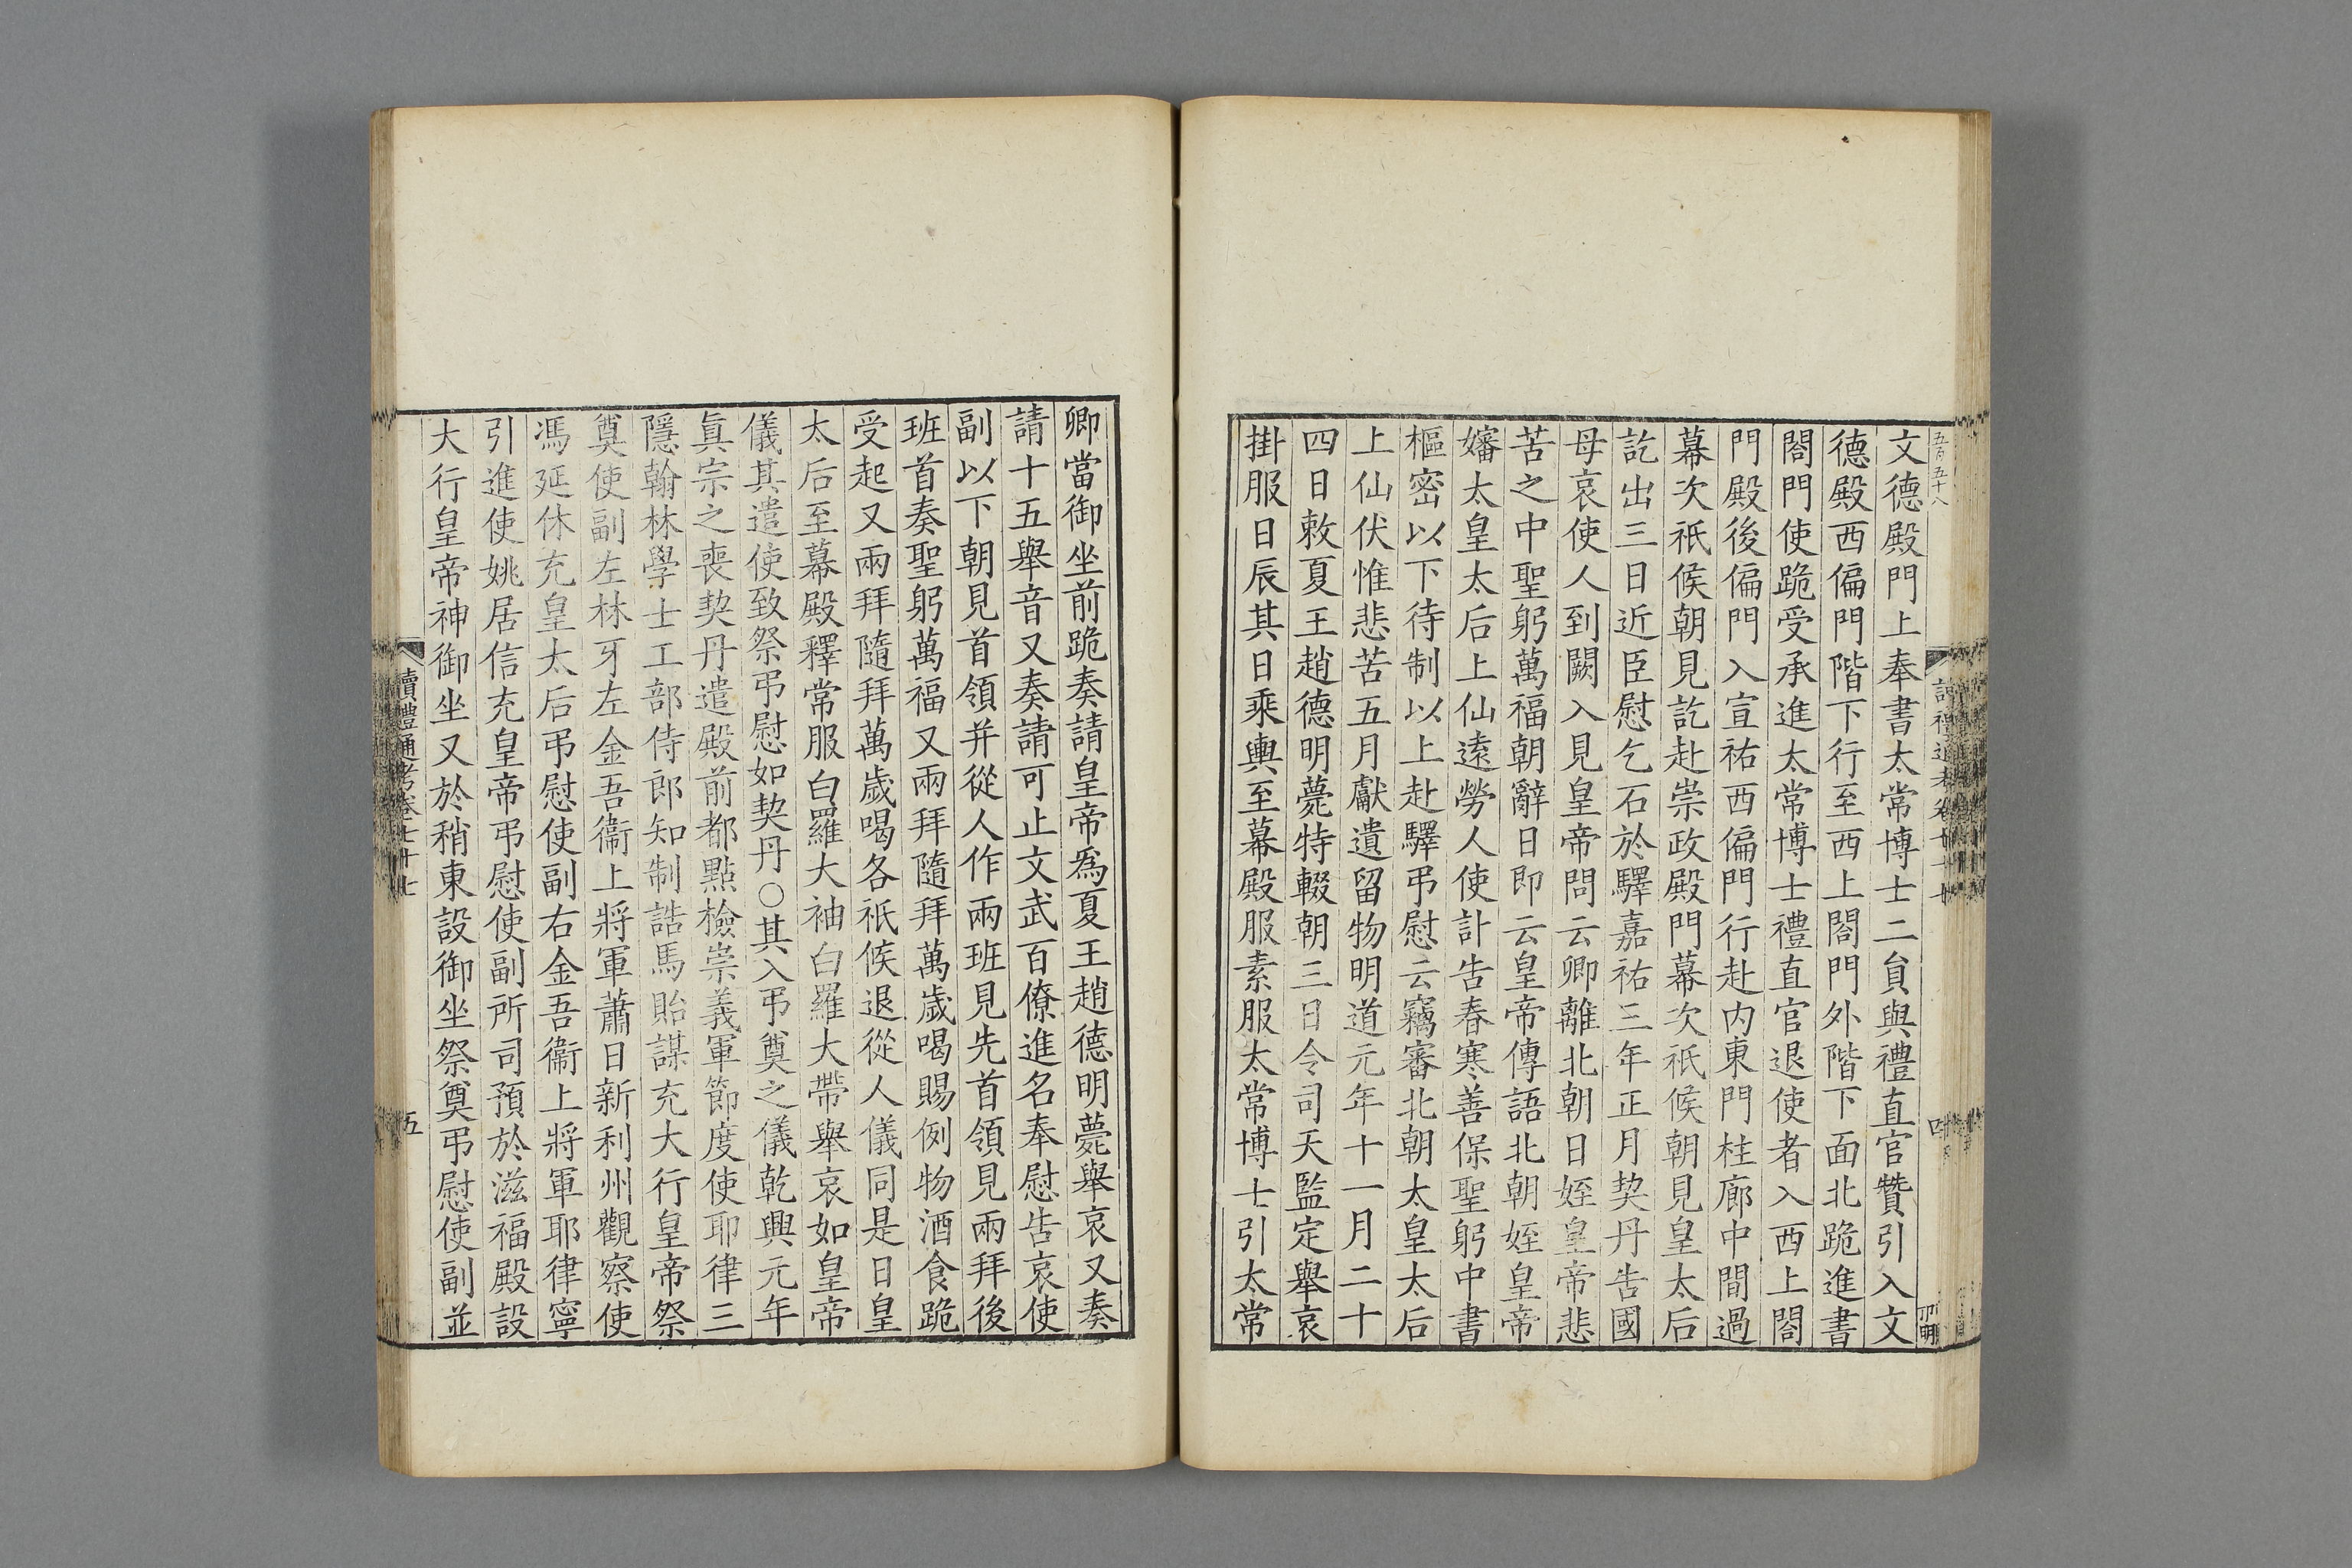 五百五十八
讀禮通考卷七十七
四
文德殿門上奉書太常博士二員與禮直官贊引入文
德殿西偏門階下行至西上閤門外階下面北跪進書
閤門使跪受承進太常博士禮直官退使者入西上閤
門殿後偏門入宣祐西偏門行赴内東門柱廊中間過
幕次祇候朝見訖赴崇政殿門幕次祇候朝見皇太后
訖出三日近臣慰乞石於驛嘉祐三年正月契丹告國
母哀使人到闕入見皇帝問云卿離北朝日姪皇帝悲
苦之中聖躬萬福朝辭日即云皇帝傳語北朝姪皇帝
嬸太皇太后上仙遠勞人使訃告春寒善保聖躬中書
樞密以下待制以上赴驛弔慰云竊審北朝太皇太后
上仙伏惟悲苦五月獻遺留物明道元年十一月二十
四日敕夏王趙德明薨特輟朝三日令司天監定舉哀
掛服日辰其日乘輿至幕殿服素服太常博士引太常
卿當御坐前跪奏請皇帝爲夏王趙德明薨舉哀又奏
請十五舉音又奏請可止文武百僚進名奉慰告哀使
副以下朝見首領并從人作兩班見先首領見兩拜後
班首奏聖躬萬福又兩拜隨拜萬歲喝賜例物酒食跪
受起又兩拜隨拜萬歲喝各祇候退從人儀同是日皇
太后至幕殿釋常服白羅大袖白羅大帶舉哀如皇帝
儀其遣使致祭弔慰如契丹○其入弔奠之儀乾興元年
眞宗之喪契丹遣殿前都點檢崇義軍節度使耶律三
隱翰林學士工部侍郎知制誥馬貽謀充大行皇帝祭
奠使副左林牙左金吾衞上將軍蕭日新利州觀察使
馮延休充皇太后弔慰使副右金吾衞上將軍耶律寧
引進使姚居信充皇帝弔慰使副所司預於滋福殿設
大行皇帝神御坐又於稍東設御坐祭奠弔慰使副並
讀禮通考卷七十七
五